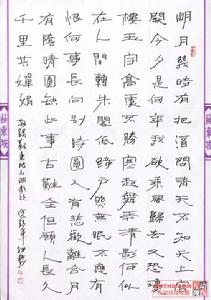 明月幾時有把酒問青天不知天上宮
闕今夕是何年我欲乘風歸去又恐瓊
樓玉宇高處不勝寒起舞弄清影何似
在人間轉朱閣低綺戶照無眠不應有
恨何事長向別時圓人有悲歡離合月
有陰晴圓缺此事古難全但願人長久
千里共嬋娟
蘇東坡水調歌頭
蘇東坡
蘇東坡